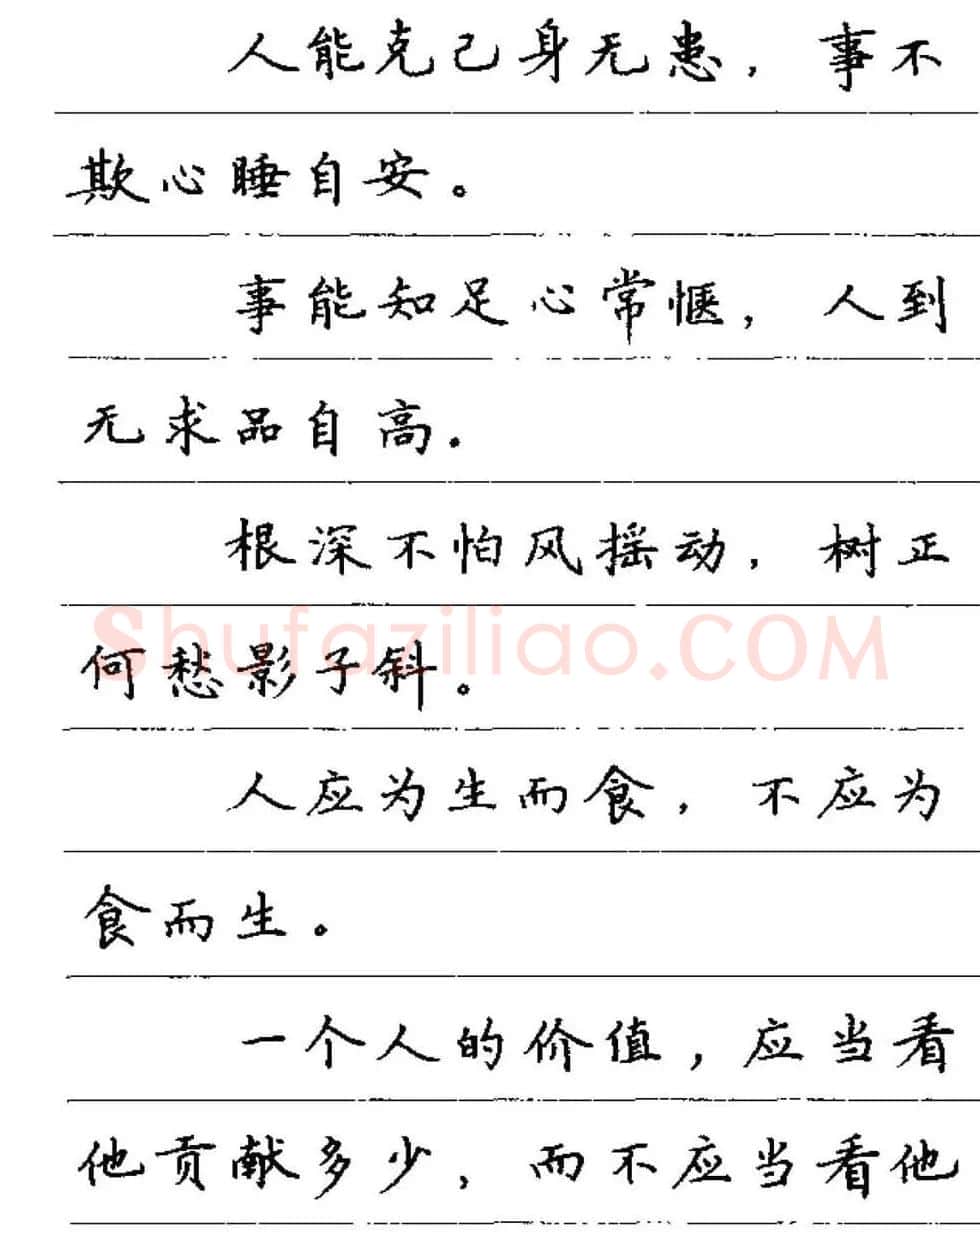 人能克己身无患，事不
欺心睡自安。
事能知足心常惬，人到
无求品自高.
根深不怕风摇动，树正
何愁影子斜。
人应为生而食，不应为
食而生。
一个人的价值，应当看
他贡献多少，而不应当看他
Shufaziliao.COM